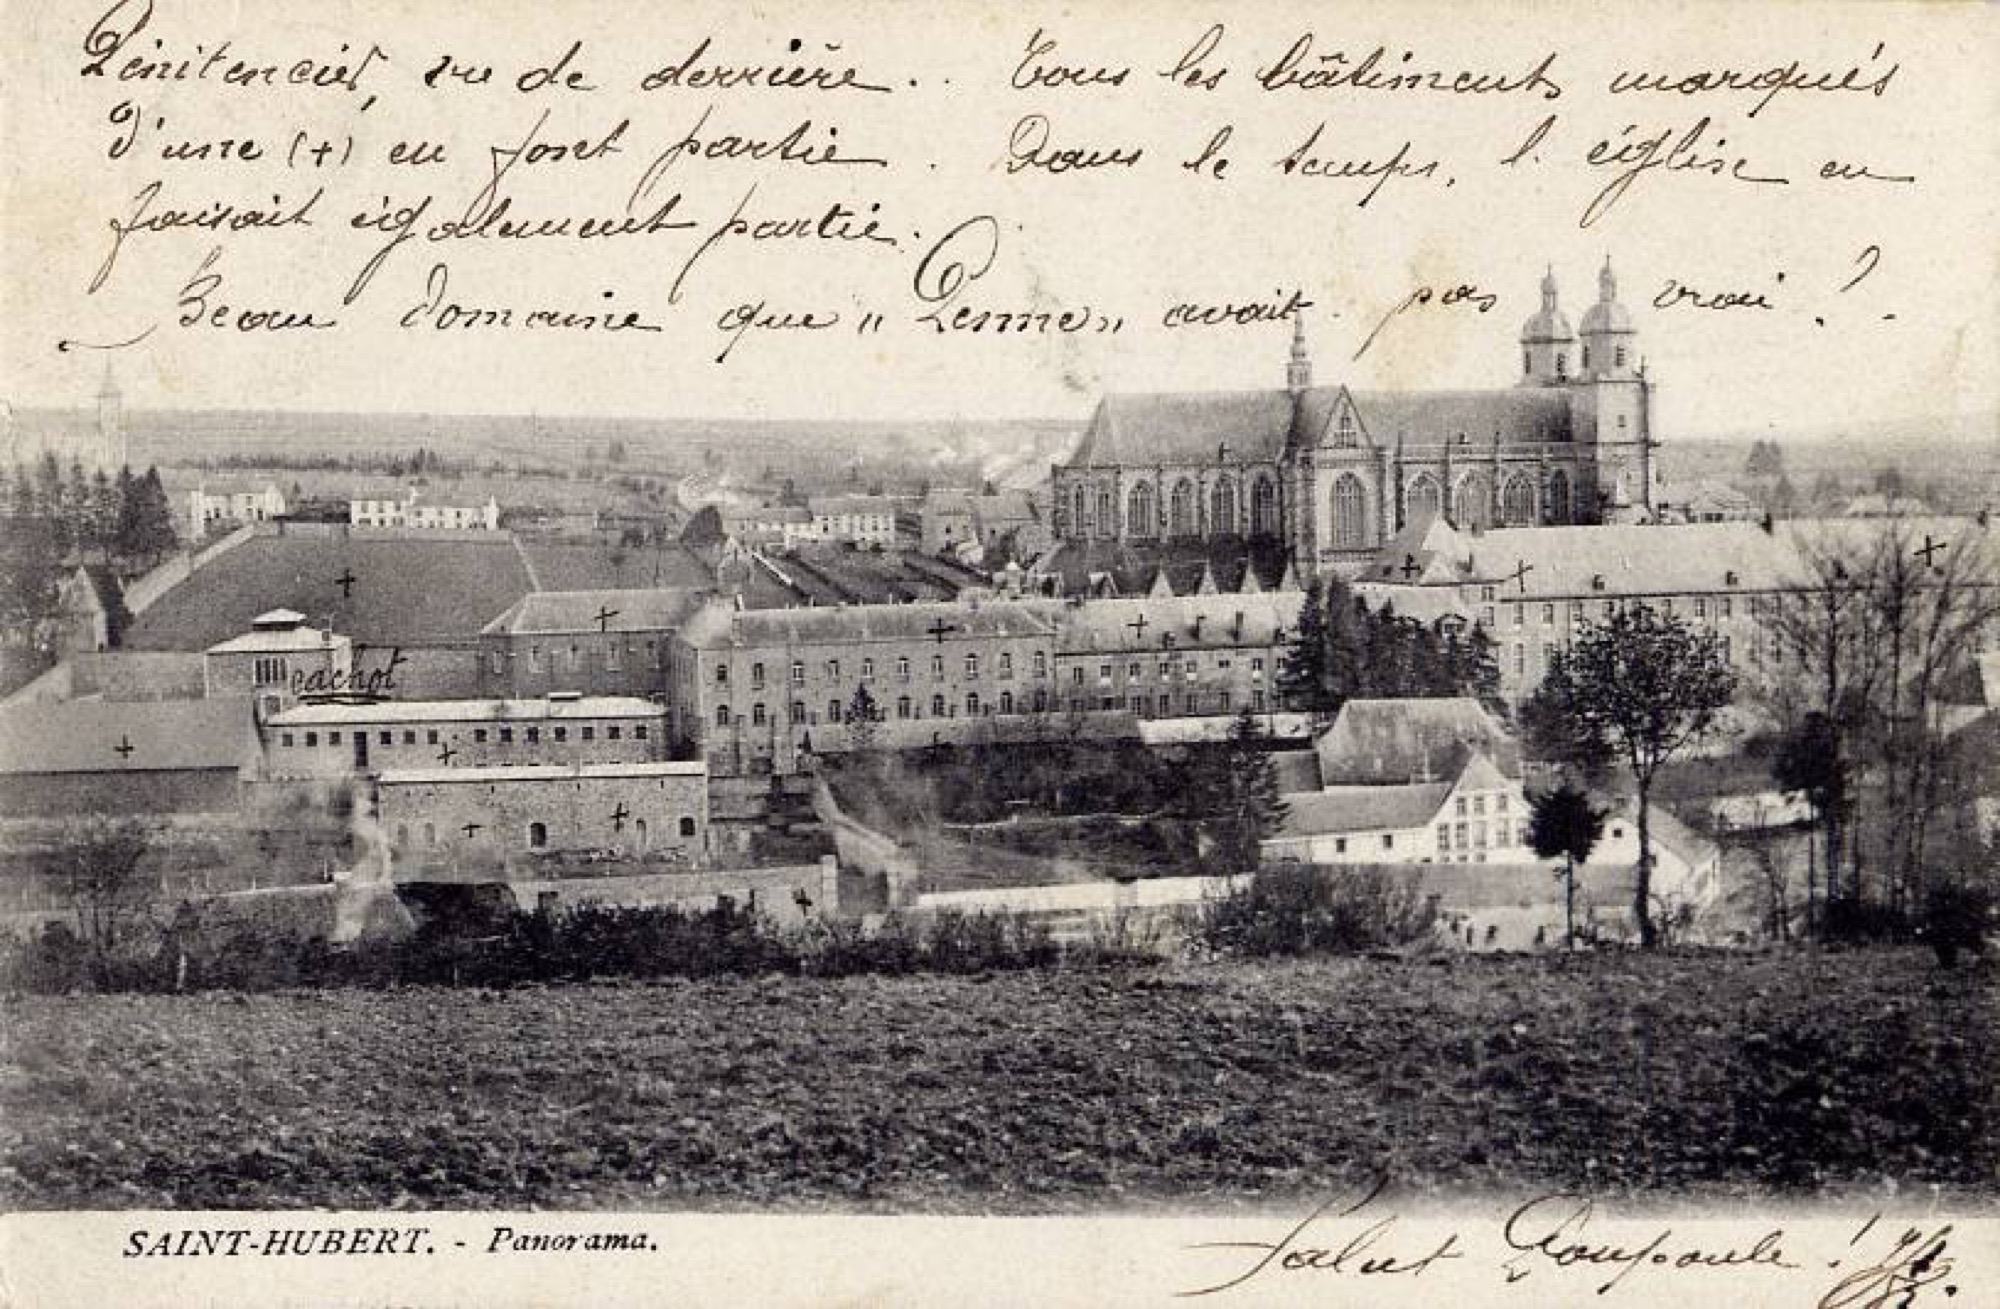 Pénitencier, vu de derrière.. Tous les bâtiments marqués
d'une (+) en font partie. Dans le temps, l'église en
faisait également partie.
Beau domaine que "Penne" avait pas vrai ?.
cachot
SAINT-HUBERT. - Panorama.
Salut Poupoule !